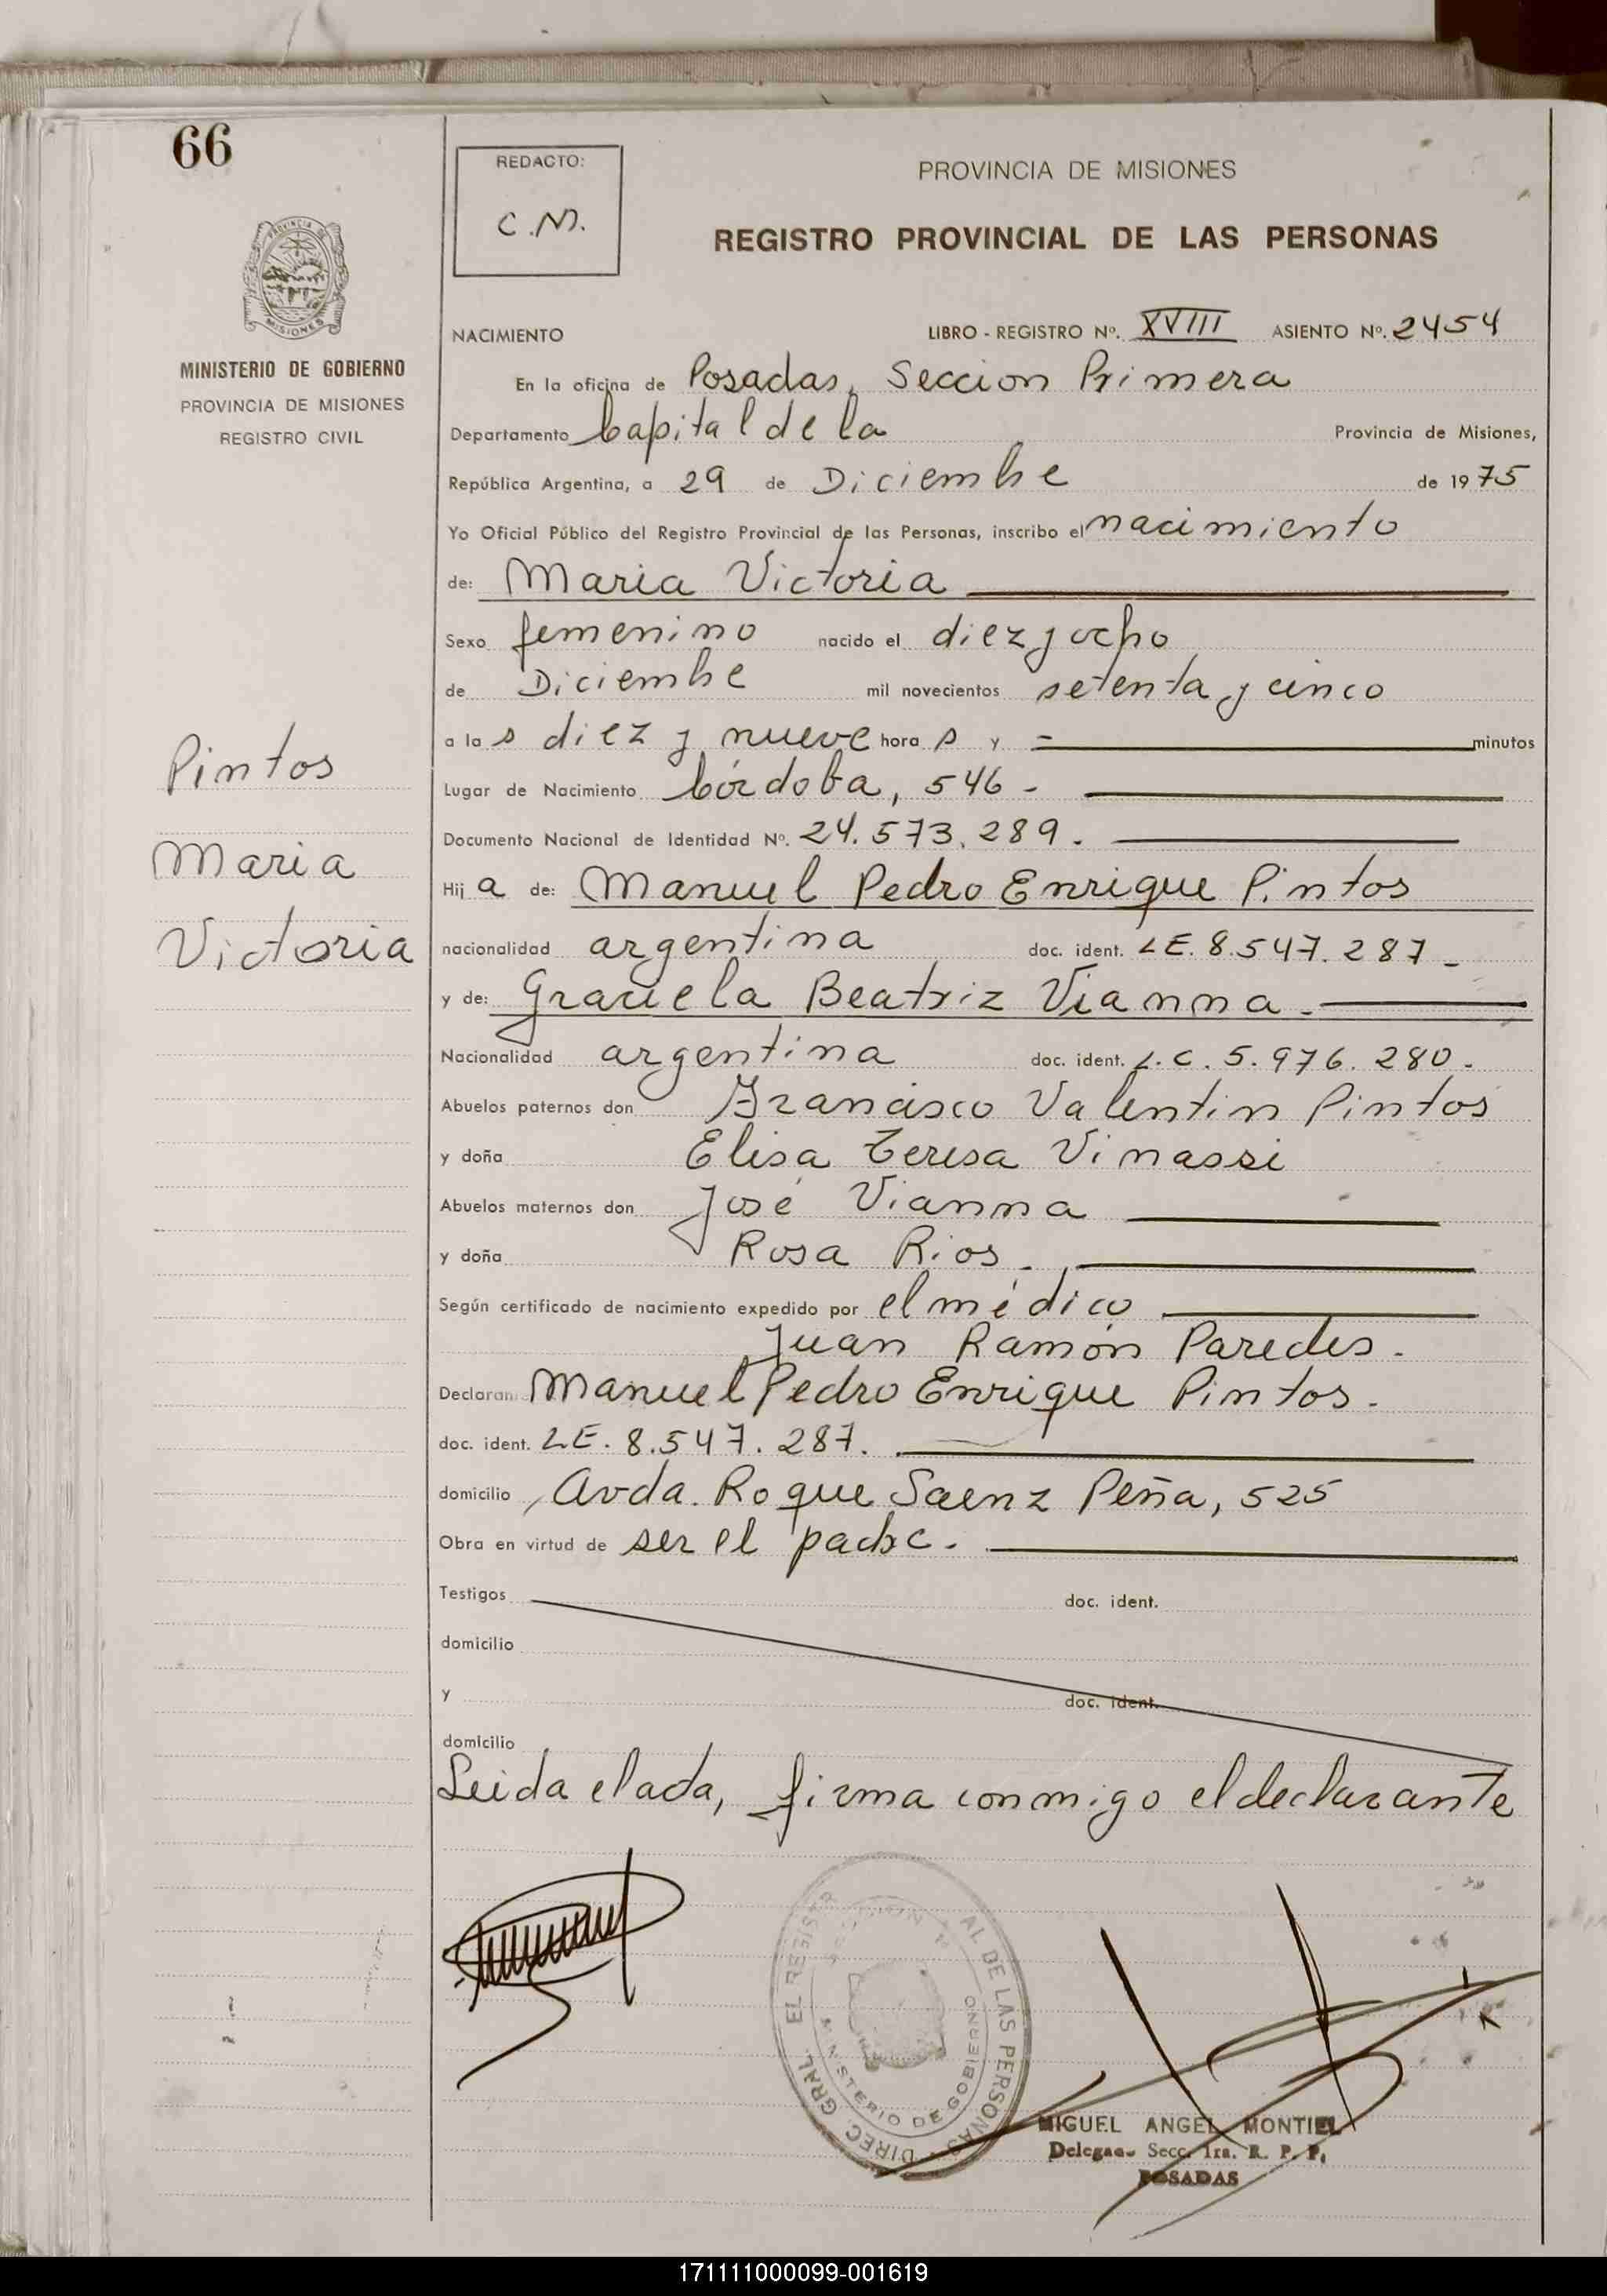 66
REDACTO:
C.M.
PROVINCIA DE MISIONES
REGISTRO PROVINCIAL DE LAS PERSONAS
PROVINCIA DE
MISIONES
MINISTERIO DE GOBIERNO
PROVINCIA DE MISIONES
REGISTRO CIVIL
NACIMIENTO LIBRO - REGISTRO Nº. XVIII ASIENTO Nº. 2454
En la oficina de Posadas, Seccion Primera
Departamento Capital de la Provincia de Misiones,
República Argentina, a 29 de Diciembre de 1975
Yo Oficial Público del Registro Provincial de las Personas, inscribo el nacimiento
de: Maria Victoria
Sexo femenino nacido el diez y ocho
de Diciembre mil novecientos setenta y cinco
a las diez y nueve horas y - minutos
Lugar de Nacimiento Córdoba, 546 -
Documento Nacional de Identidad Nº. 24.573.289.
Hija de: Manuel Pedro Enrique Pintos
nacionalidad argentina doc. ident. LE. 8.547.287 -
y de: Graciela Beatriz Vianna.
Nacionalidad argentina doc. ident. L.C. 5.976.280.
Abuelos paternos don Francisco Valentin Pintos
y doña Elisa Teresa Vinassi
Abuelos maternos don José Vianna
y doña Rosa Rios.
Según certificado de nacimiento expedido por el médico
Juan Ramón Paredes.
Declaran Manuel Pedro Enrique Pintos.
doc. ident. LE. 8.547.287.
domicilio Avda. Roque Saenz Peña, 525
Obra en virtud de ser el padre.
Testigos doc. ident.
domicilio
y doc. ident.
domicilio
Leida el acta, firma conmigo el declarante
Pintos
Maria
Victoria
DIREC. GRAL. EL REGISTR AL DE LAS PERSONAS
MINISTERIO DE GOBIERNO
MIGUEL ANGEL MONTIEL
Delegado Secc. 1ra. R. P. P.
POSADAS
171111000099-001619